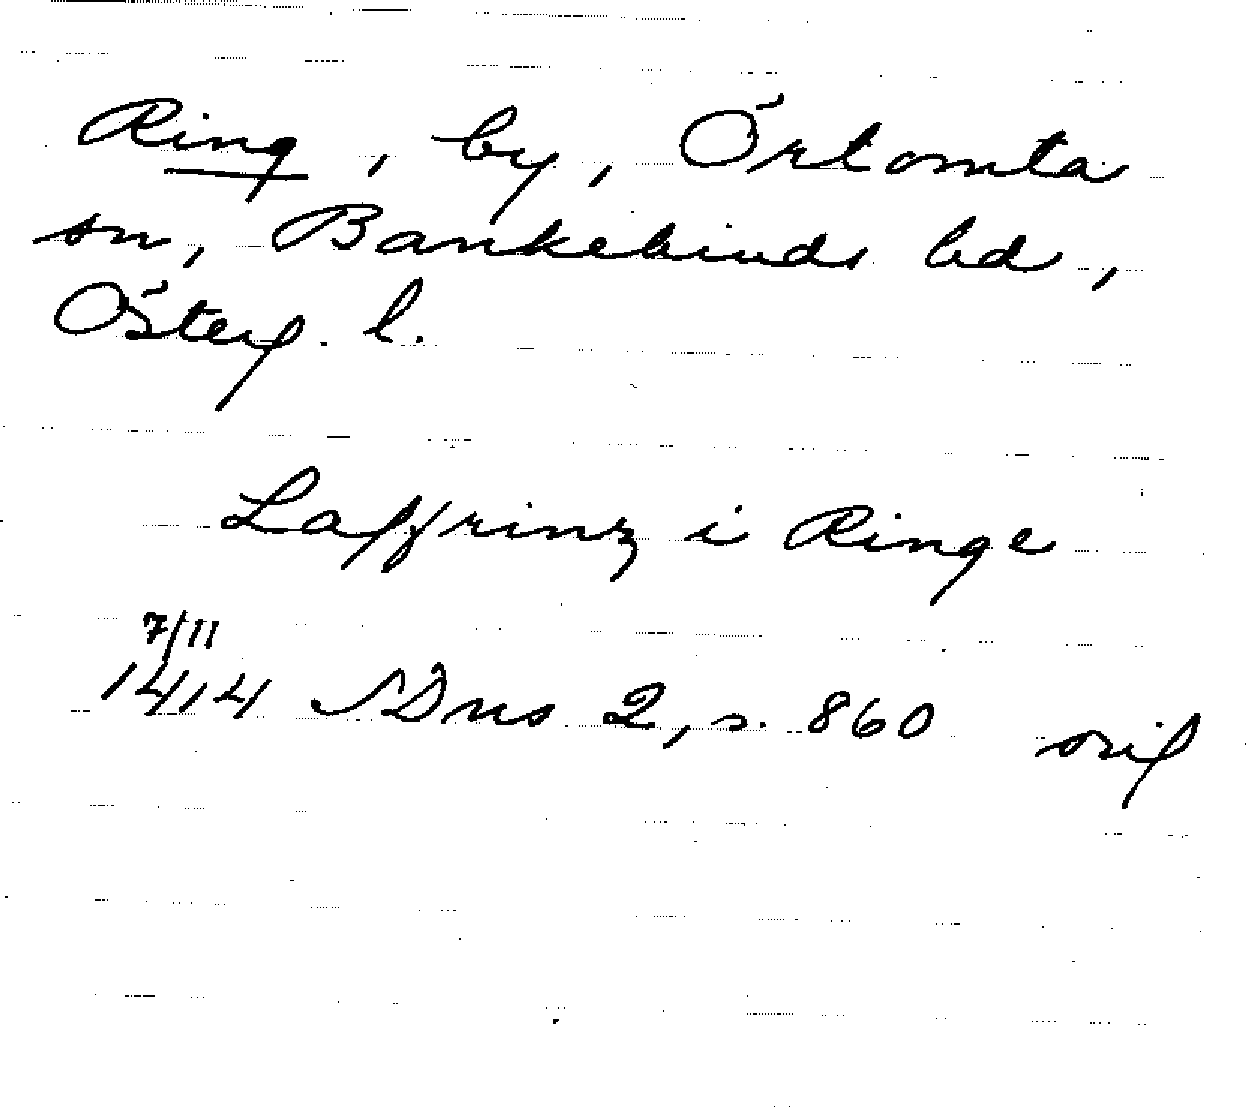 Ring, by, Örtomta
sn, Bankekinds hd,
Österg. l.
Laffrinz i Ringe
7/11
1414 SDns 2, s. 860 orig